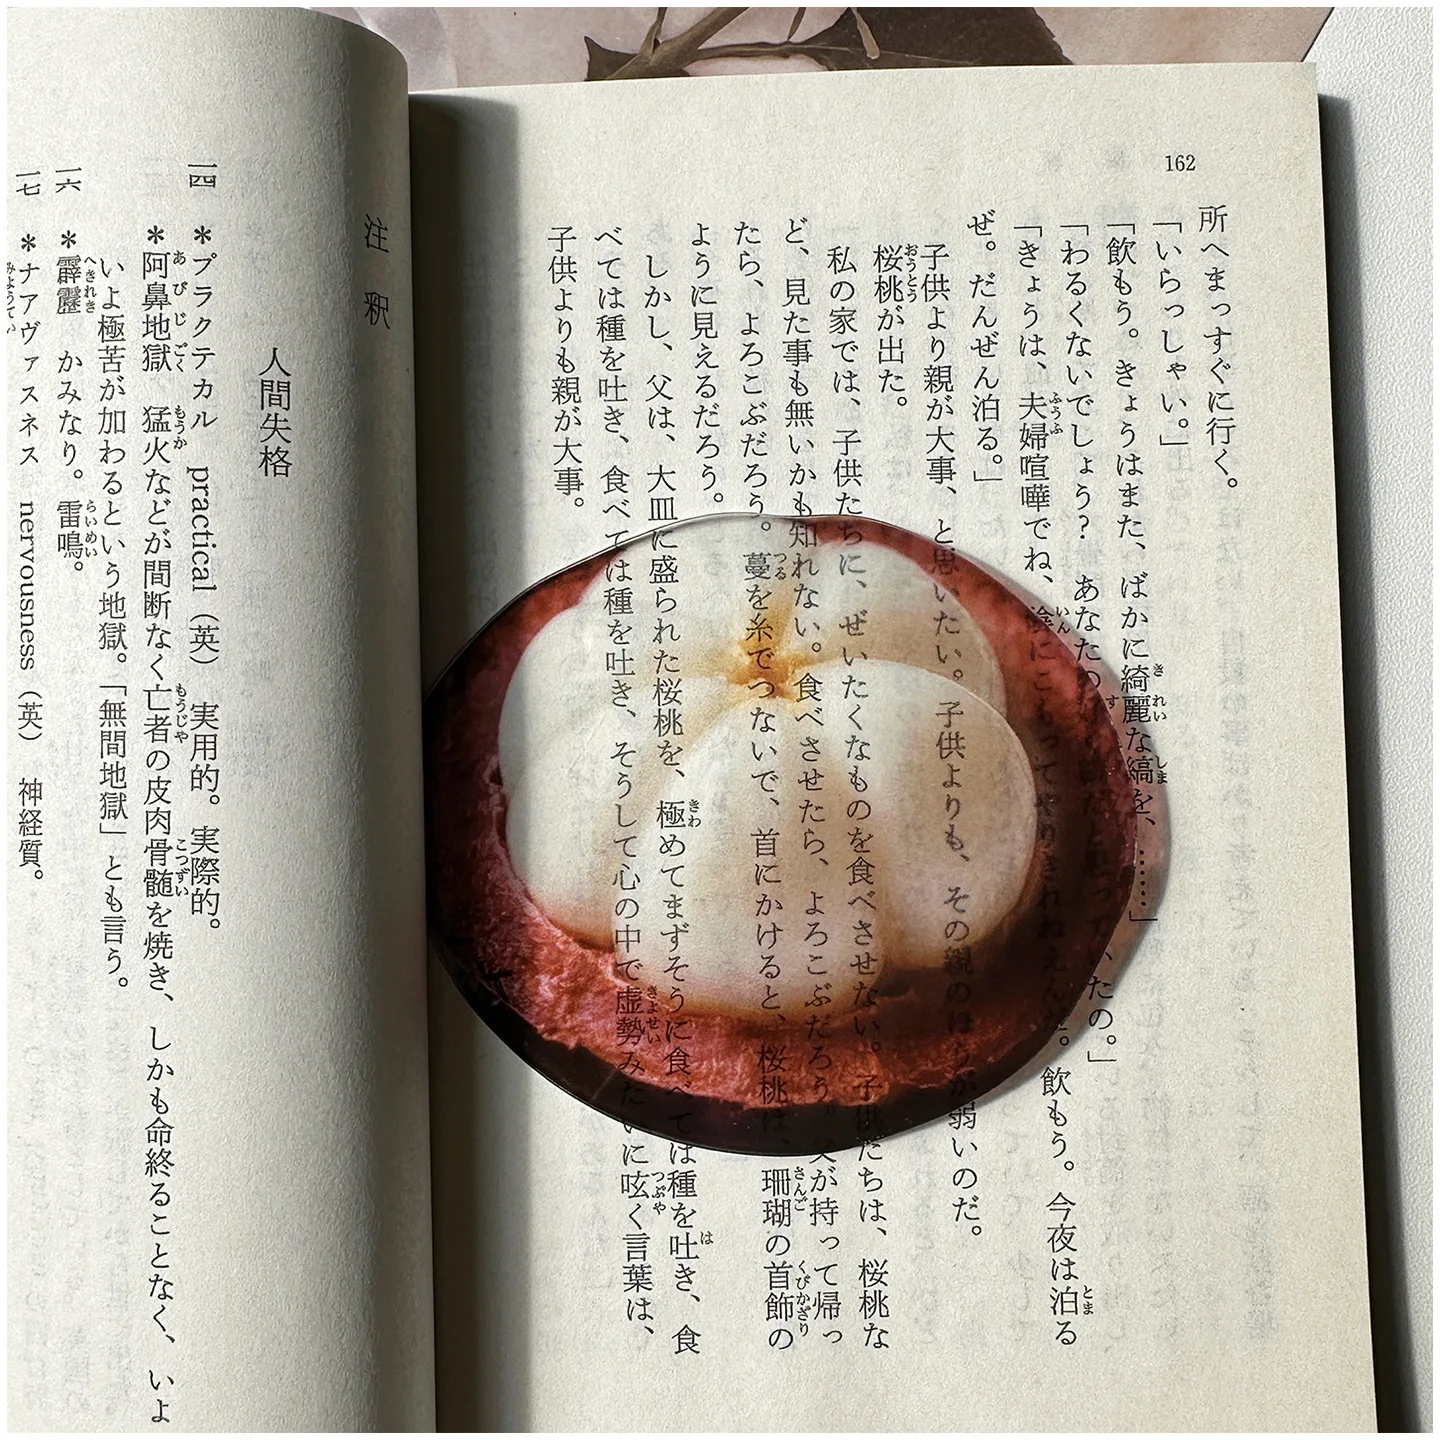 162
所へまっすぐに行く。
「いらっしゃい。」
「飲もう。きょうはまた、ばかに綺麗な縞を、……」
「わるくないでしょう? あなたの
いたの。」
「きょうは、夫婦喧嘩でね、陰にこもってやりきれねえんだ。飲もう。今夜は泊る
ぜ。だんぜん泊る。」
子供より親が大事、と思いたい。子供よりも、その親のほうが弱いのだ。
桜桃が出た。
私の家では、子供たちに、ぜいたくなものを食べさせない。子供たちは、桜桃な
ど、見た事も無いかも知れない。食べさせたら、よろこぶだろう。父が持って帰っ
たら、よろこぶだろう。蔓を糸でつないで、首にかけると、桜桃は、珊瑚の首飾の
ように見えるだろう。
しかし、父は、大皿に盛られた桜桃を、極めてまずそうに食べては種を吐き、食
べては種を吐き、食べては種を吐き、そうして心の中で虚勢みたいに呟く言葉は、
子供よりも親が大事。
注釈
人間失格
一四 *プラクテカル practical(英) 実用的。実際的。
*阿鼻地獄 猛火などが間断なく亡者の皮肉骨髄を焼き、しかも命終ることなく、いよ
いよ極苦が加わるという地獄。「無間地獄」とも言う。
一六 *霹靂 かみなり。雷鳴。
一七 *ナアヴァスネス nervousness(英) 神経質。